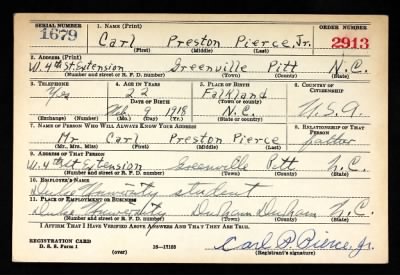 SERIAL NUMBER 1. NAME (Print) ORDER NUMBER
1679 Carl Preston Pierce, Jr. 2913
(First) (Middle) (Last)
2. ADDRESS (Print)
W. 4th St. Extension Greenville Pitt N.C.
(Number and street or R. F. D. number) (Town) (County) (State)
3. TELEPHONE 4. AGE IN YEARS 5. PLACE OF BIRTH 6. COUNTRY OF CITIZENSHIP
22 Falkland
DATE OF BIRTH (Town or county)
Feb. 9 1918 N.C. U.S.A.
(Exchange) (Number) (Mo.) (Day) (Yr.) (State or country)
7. NAME OF PERSON WHO WILL ALWAYS KNOW YOUR ADDRESS 8. RELATIONSHIP OF THAT PERSON
Mr Carl Preston Pierce father
(Mr., Mrs., Miss) (First) (Middle) (Last)
9. ADDRESS OF THAT PERSON
W. 4th St Extension Greenville Pitt N.C.
(Number and street or R. F. D. number) (Town) (County) (State)
10. EMPLOYER'S NAME
Duke University student
11. PLACE OF EMPLOYMENT OR BUSINESS
Duke University Durham Durham N.C.
(Number and street or R. F. D. number) (Town) (County) (State)
I AFFIRM THAT I HAVE VERIFIED ABOVE ANSWERS AND THAT THEY ARE TRUE.
REGISTRATION CARD
D. S. S. Form 1 (over) 16—17105 Carl P. Pierce, Jr.
(Registrant's signature)